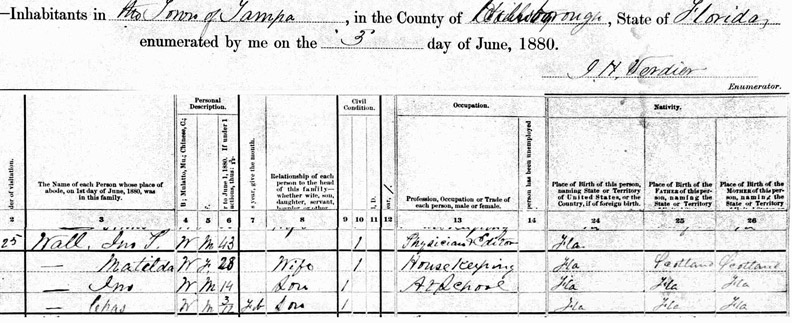 —Inhabitants in the Town of Tampa, in the County of Hillsborough, State of Florida,
enumerated by me on the 3 day of June, 1880.
J. H. Verdier
Enumerator.
Personal Description. Civil Condition. Occupation. Nativity.
The Name of each Person whose place of abode, on 1st day of June, 1880, was in this family.
Relationship of each person to the head of this family—whether wife, son, daughter, servant,
Profession, Occupation or Trade of each person, male or female.
Place of Birth of this person, naming State or Territory of United States, or the Country, if of foreign birth.
Place of Birth of the FATHER of this person, naming the State or Territory
Place of Birth of the MOTHER of this person, naming the State or Territory
2 3 4 5 6 7 8 9 10 11 12 13 14 24 25 26
25 Wall, Jno P. W M 43 1 Physician & Editor Fla
— Matilda W F 28 Wife 1 Housekeeping Fla Scotland Scotland
— Jno W M 14 Son 1 At School Fla Fla Fla
— Chas W M 3/12 Feb Son 1 Fla Fla Fla